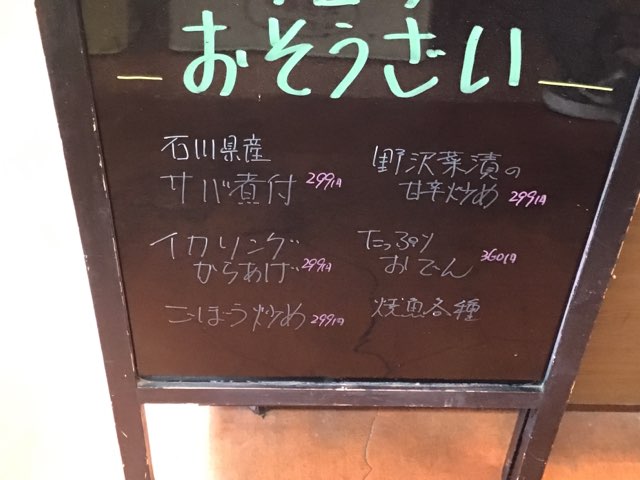 おそうざい
石川県産
サバ煮付 299円
イカリング
からあげ 299円
ごぼう炒め 299円
野沢菜漬の
甘辛炒め 299円
たっぷり
おでん 360円
焼魚各種